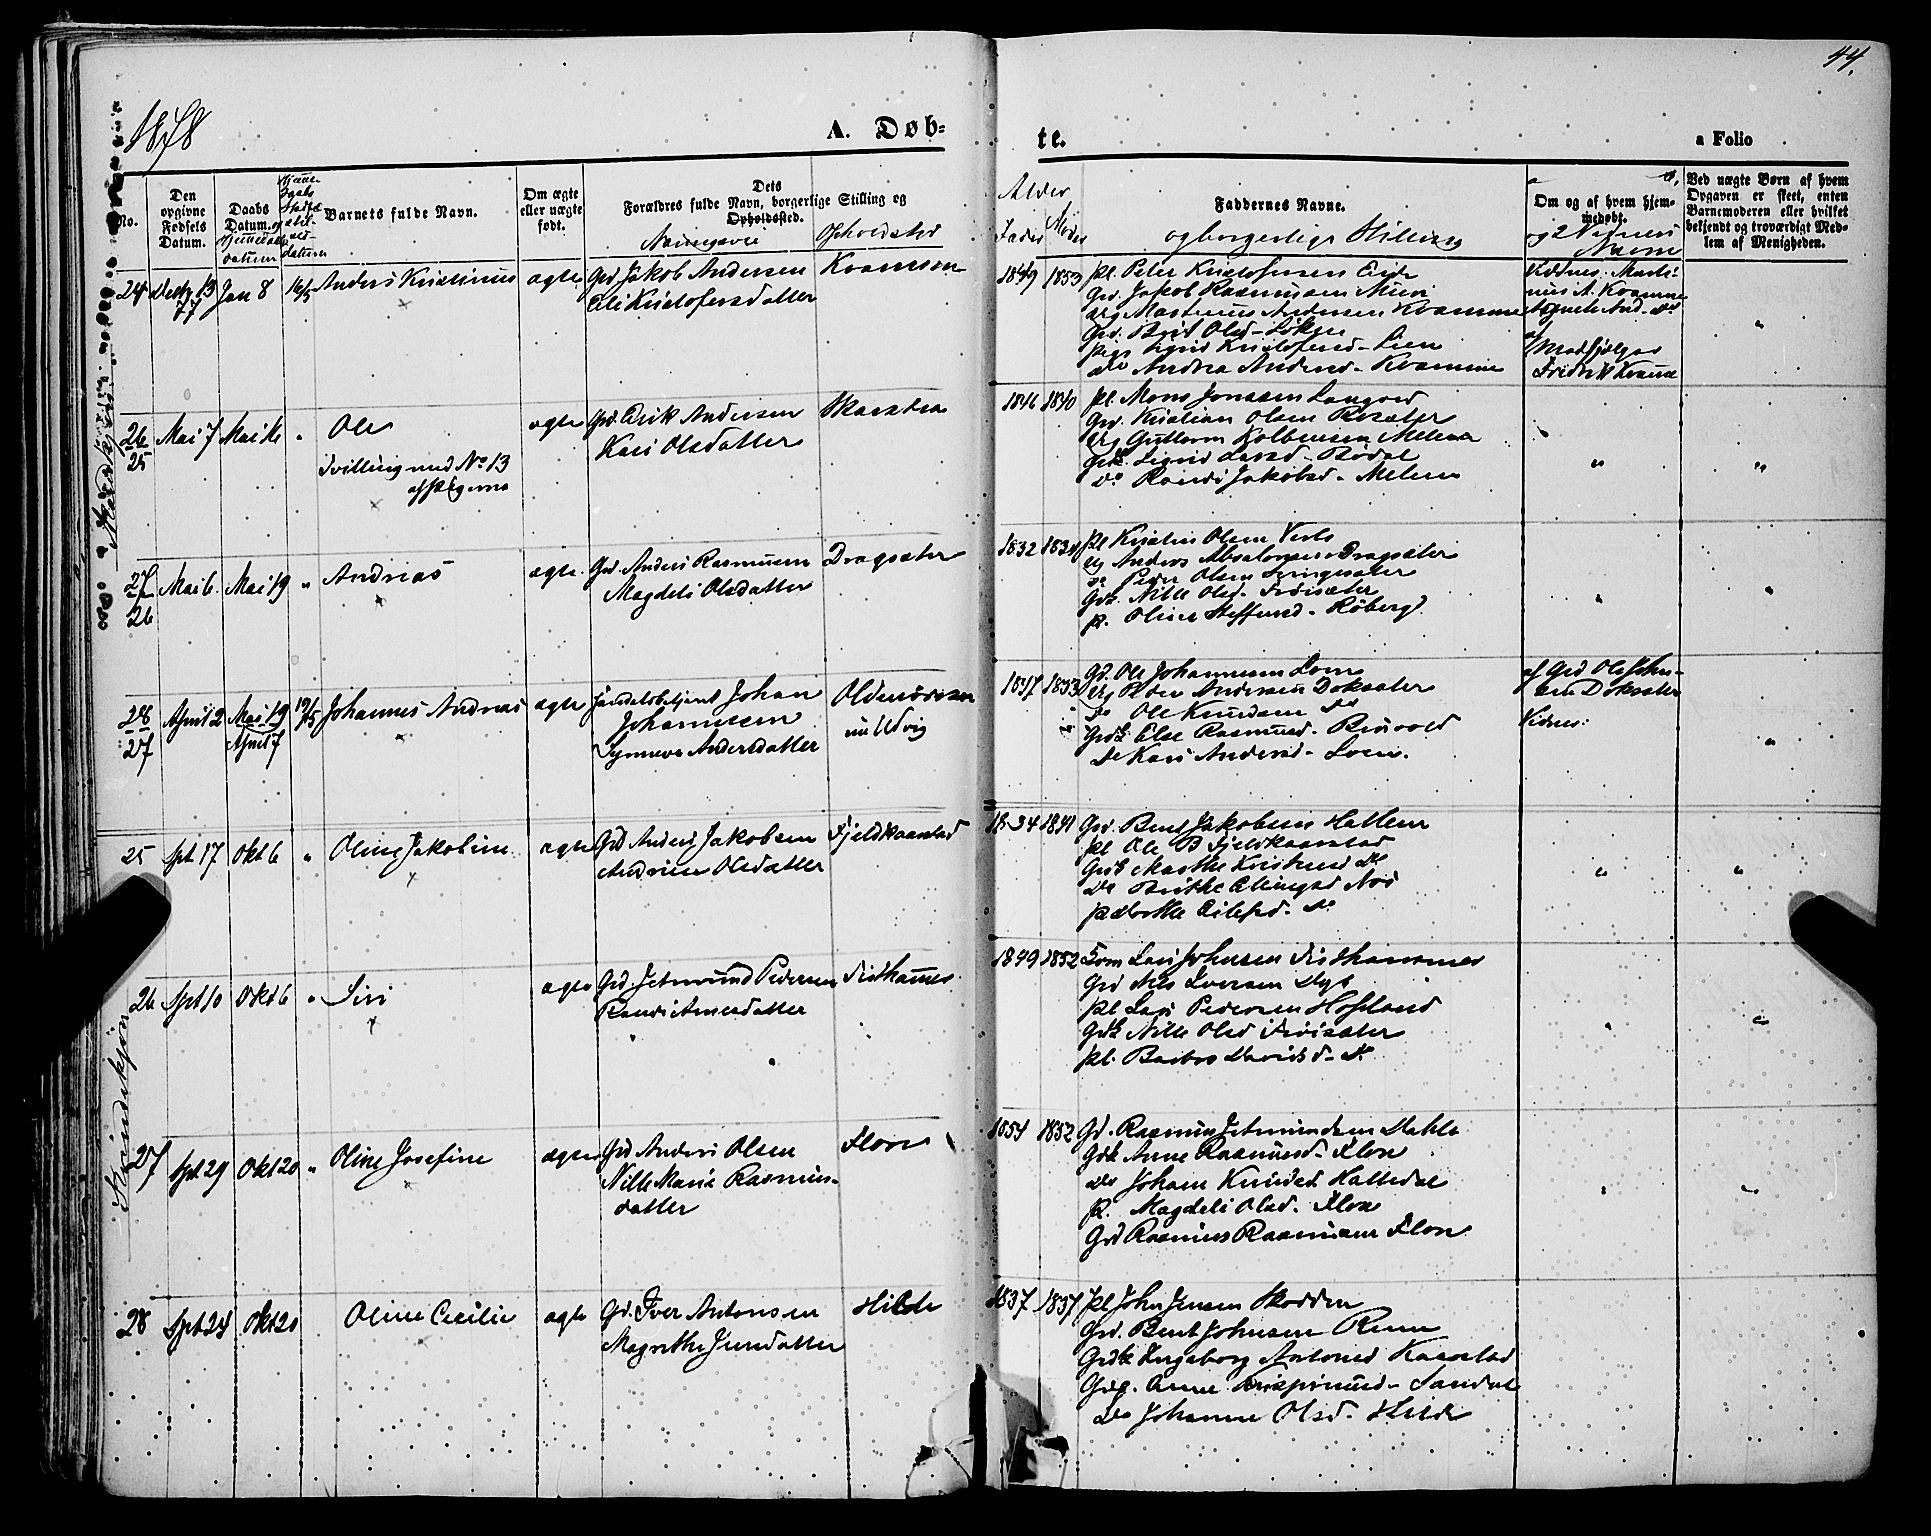 44.
1878
A. Døb-
te.
a Folio
No.
Den opgivne Fødsels Datum.
Daabs Datum. og Hjemmedaabs datum
Barnets fulde Navn.
Om ægte eller uægte født.
Dets
Forældres fulde Navn, borgerlige Stilling og
Opholdssted.
Næringsvei
Opholdsted
Alder
Fader Moder
Faddernes Navne.
og borgerlige Stilling
Om og af hvem hjemmedøbt.
og 2 Vidners Navne
Ved uægte Børn af hvem
Opgaven er skeet, enten
Barnemoderen eller hvilket
bekjendt og troværdigt Med-
lem af Menigheden.
Mandkjøn
24 Decbr 13 77 Jan 8 16/5 Anders Kristinus ægte Grd Jakob Andersen
Eli Kristofersdatter
Kvamme
1849 1853 pl. Peter Kristofersen Eide
Grd. Jakob Rasmussen Muri
arg Martinus Andersen Kvamme
Grd. Brit Olsd- Løken
Pige Sigrid Kristofersd- Lien
do Andrea Andersd- Kvamme
Vidnes: Marti-
nus A. Kvamme
Agnete And- do
af Madfjølgar
Fredrik Kvamme
26
25 Mai 7 Mai 16 " Ole
Tvilling med No 13
af Pigerne
ægte Grd. Erik Andersen
Kari Olsdatter
Skarstein
1846 1840 pl. Mons Jonsen Langved
Grd. Kristian Olsen Russæter
arg Guttorm Kolbensen Melena
Grdk. Sigrid Larsd- Bødal
do Randi Jakobsd- Melena
27
26 Mai 6. Mai 19 " Andrias ægte. Grd. Anders Rasmussen
Magdeli Olsdatter
Dragsæter
1832 pl Kristen Olsen
arg Anders Absalonsen Dragsæter
do Peder Olsen
Grdk. Nille Olsd-
p. Oline Steffensd- Røberg
28
27 April 2 Mai 19
April 7 19/5 Johannes Andreas ægte Johan
Johannessen
Synneve Andersdatter
Oldenøreisen
nu Udvig
1847 1853 Gd. Ole Johannessen Loen
arg Peder Andersen Doksæter
do Ole Knudsen do
Grdk. Else Rasmusd- Bruvold
do Kari Andersd- Loen.
af Grd Ole Johan-
sen Doksæter
Vidnes:
Kvindekjøn
25 Spt 17 Okt 6 " Oline Jakobine ægte Grd Anders Jakobsen
Andrine Olsdatter
Fjeldkaarstad
1834 1841 Grd. Bent Jakobsen Hatlem
pl. Ole B Fjeldkaarstad
Grdk Marthe Kristensd do
do Brithe Ellingsd Nos
p Dorthe Eilefsd- do
26 Spt 10 Okt 6 " Siri ægte Grd Jetmund Pedersen
Randi Arnesdatter
Fristhamnes
1849 1852 Lars Johnsen Fristhamnes
Grd Nils Iversen Myt
pl Lars Pedersen Hofland
Grdk Nille Olsd
pl. Barbro Davidsd- do
27 Spt 29 Okt 20 " Oline Josefine ægte Grd Anders Olsen
Nille Marie Rasmus-
datter
Floen
1854 1852 Gd. Rasmus Jetmundsen Dahle
Grdk Anne Rasmusd- Floen
do Johane Knudsd Hatledal
p. Magdeli Olsd- Floen
Grd Rasmus Rasmussen Floen
28 Spt 24 Okt 20 Oline Cecilie ægte Gd. Iver Antonsen
Magrethe Jensdatter
Hilde
1837 1837 pl John Jensen Skodden
Grd. Bent Johnsen
Grdk Ingeborg Antonsd Kaarstad
Grdk. Anne Sandal
do Johanne Olsd- Hilde